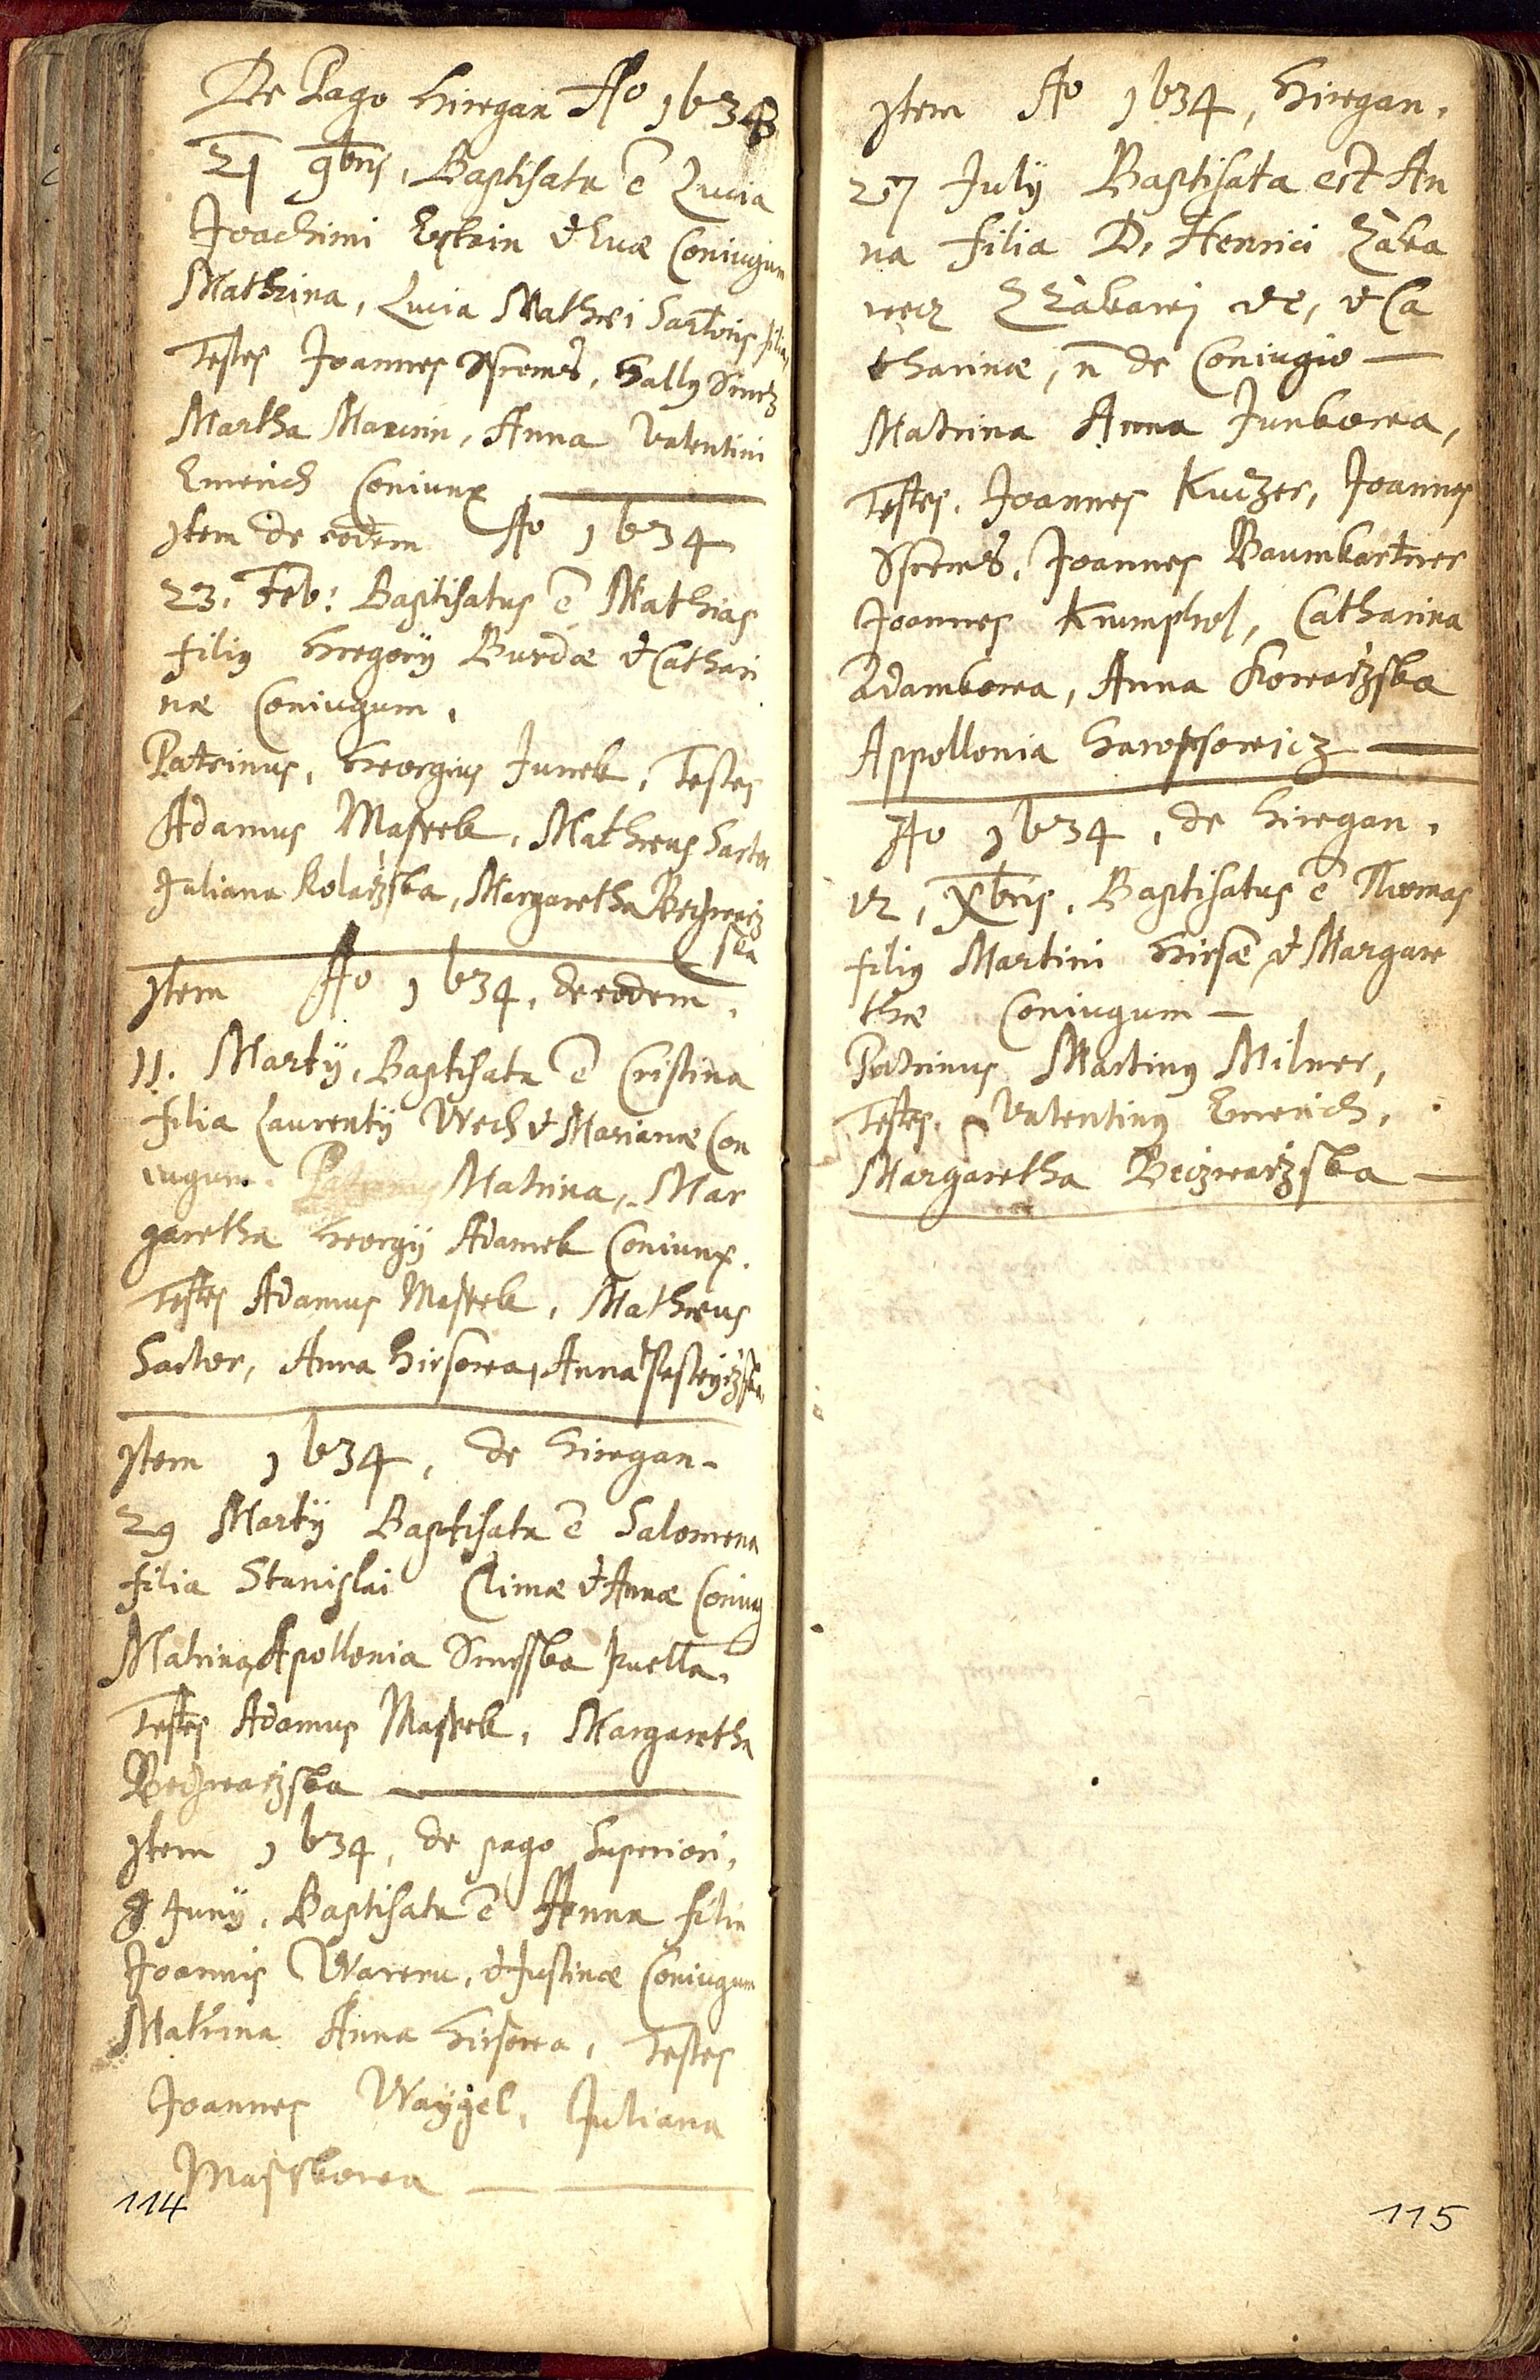 De Pago Hiregan Ao 1633
21 9bris, Baptisata ē Lucia
Joachimi & Euæ Coniugum
Mathrina, Lucia Mathei Sartoris filia
Testes Joannes Skrems,
Martha Marcin, Anna Valentini
Emerich Coniunx
Item de eodem Ao 1634
23. Feb: Baptisatus ē Mathias
filiy Gregory Burdæ & Cathari
næ Coniugum.
Patrinus, Georgius Junek, Testes
Adamus Massek, Matheus Sartor
Juliana Kolarzska, Margaretha Beczwarz
ska
Item Ao 1634, de eodem.
11. Martÿ, Baptisata ē Cristina
filia Laurentÿ Wech & Marianæ Con
iugum. Matrina, Mar
garetha Georgÿ Adamek Coniunx.
Testes Adamus Massek, Matheus
Sartor, Anna Hirsowa, Anna
Item 1634, de Hiregan.
29 Martÿ Baptisata ē Salomena
filia Stanislai Climæ & Annæ Coniug
Matrina, Apollonia Smrsska puella.
Testes Adamus Massek, Margaretha
Beczwarzska
Item 1634, de pago Superiori,
8 Junÿ, Baptisata ē Anna filia
Joannis Wareru, & Justinæ Coniugum
Matrina Anna Hirsowa, Testes
Joannes Waygel, Juliana
Masskowa
114
Item Ao 1634, Hiregan.
27 Julÿ Baptisata est An
na filia D. Henrici Zaka
wecz Zzakawy &c, & Ca
tharinæ, n̄ de Coniugio
Matrina Anna Junkowa,
Testes. Joannes Kuczer, Joannes
Skrems, Joannes Baumkartner
Joannes Krumphol, Catharina
Adamkowa, Anna Kowarzska
Appollonia Hawpsowicz
Ao 1634, de Hiregan.
12, Xbris, Baptisatus ē Thomas
filiy Martini Hirsæ & Margare
thæ Coniugum
Patrinus Martiny Milner,
Testes. Valentiny Emerich,
Margaretha Beczwarzska
115